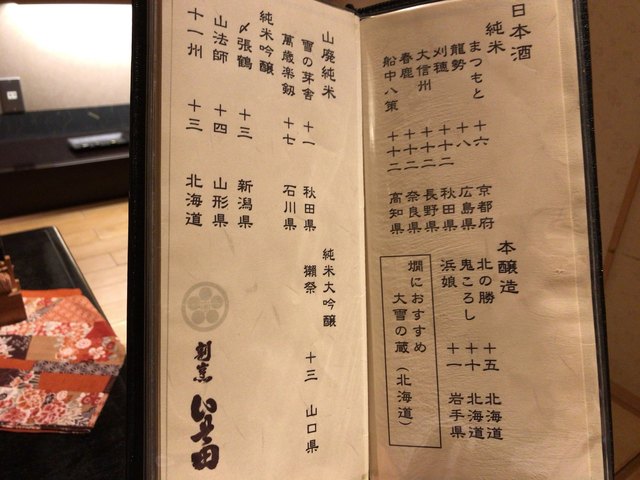 日本酒
純米
まつもと 十六 京都府
龍勢 十八 広島県
刈穂 十十二 秋田県
大信州 長野県
春鹿 奈良県
船中八策 高知県
本醸造
北の勝 十五 北海道
鬼ころし 十十 北海道
浜娘 十一 岩手県
燗におすすめ
大雪の蔵(北海道)
山廃純米
雪の芽舎 十一 秋田県
萬歳楽剱 十七 石川県
純米吟醸
〆張鶴 十三 新潟県
山法師 十四 山形県
十一州 十三 北海道
純米大吟醸
獺祭 十三 山口県
割烹